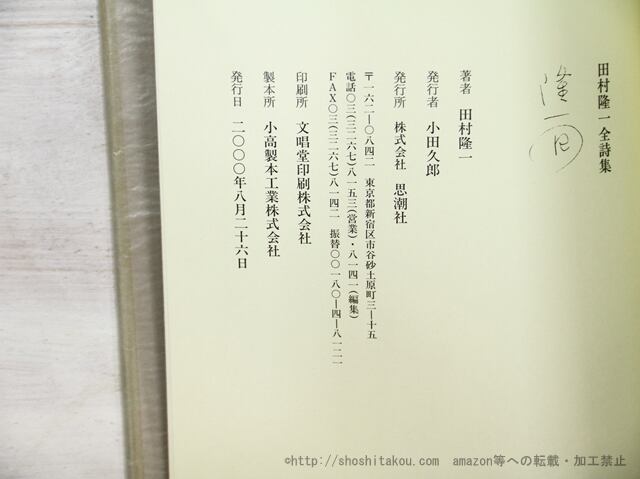 田村隆一全詩集
隆一
著者　田村隆一
発行者　小田久郎
発行所　株式会社　思潮社
〒一六二―〇八四二　東京都新宿区市谷砂土原町三―十五
電話〇三(三二六七)八一五三(営業)・八一四一(編集)
FAX〇三(三二六七)八一四二　振替〇〇一八〇―四―八一二一
印刷所　文唱堂印刷株式会社
製本所　小高製本工業株式会社
発行日　二〇〇〇年八月二十六日
©http://shoshitakou.com　amazon等への転載・加工禁止